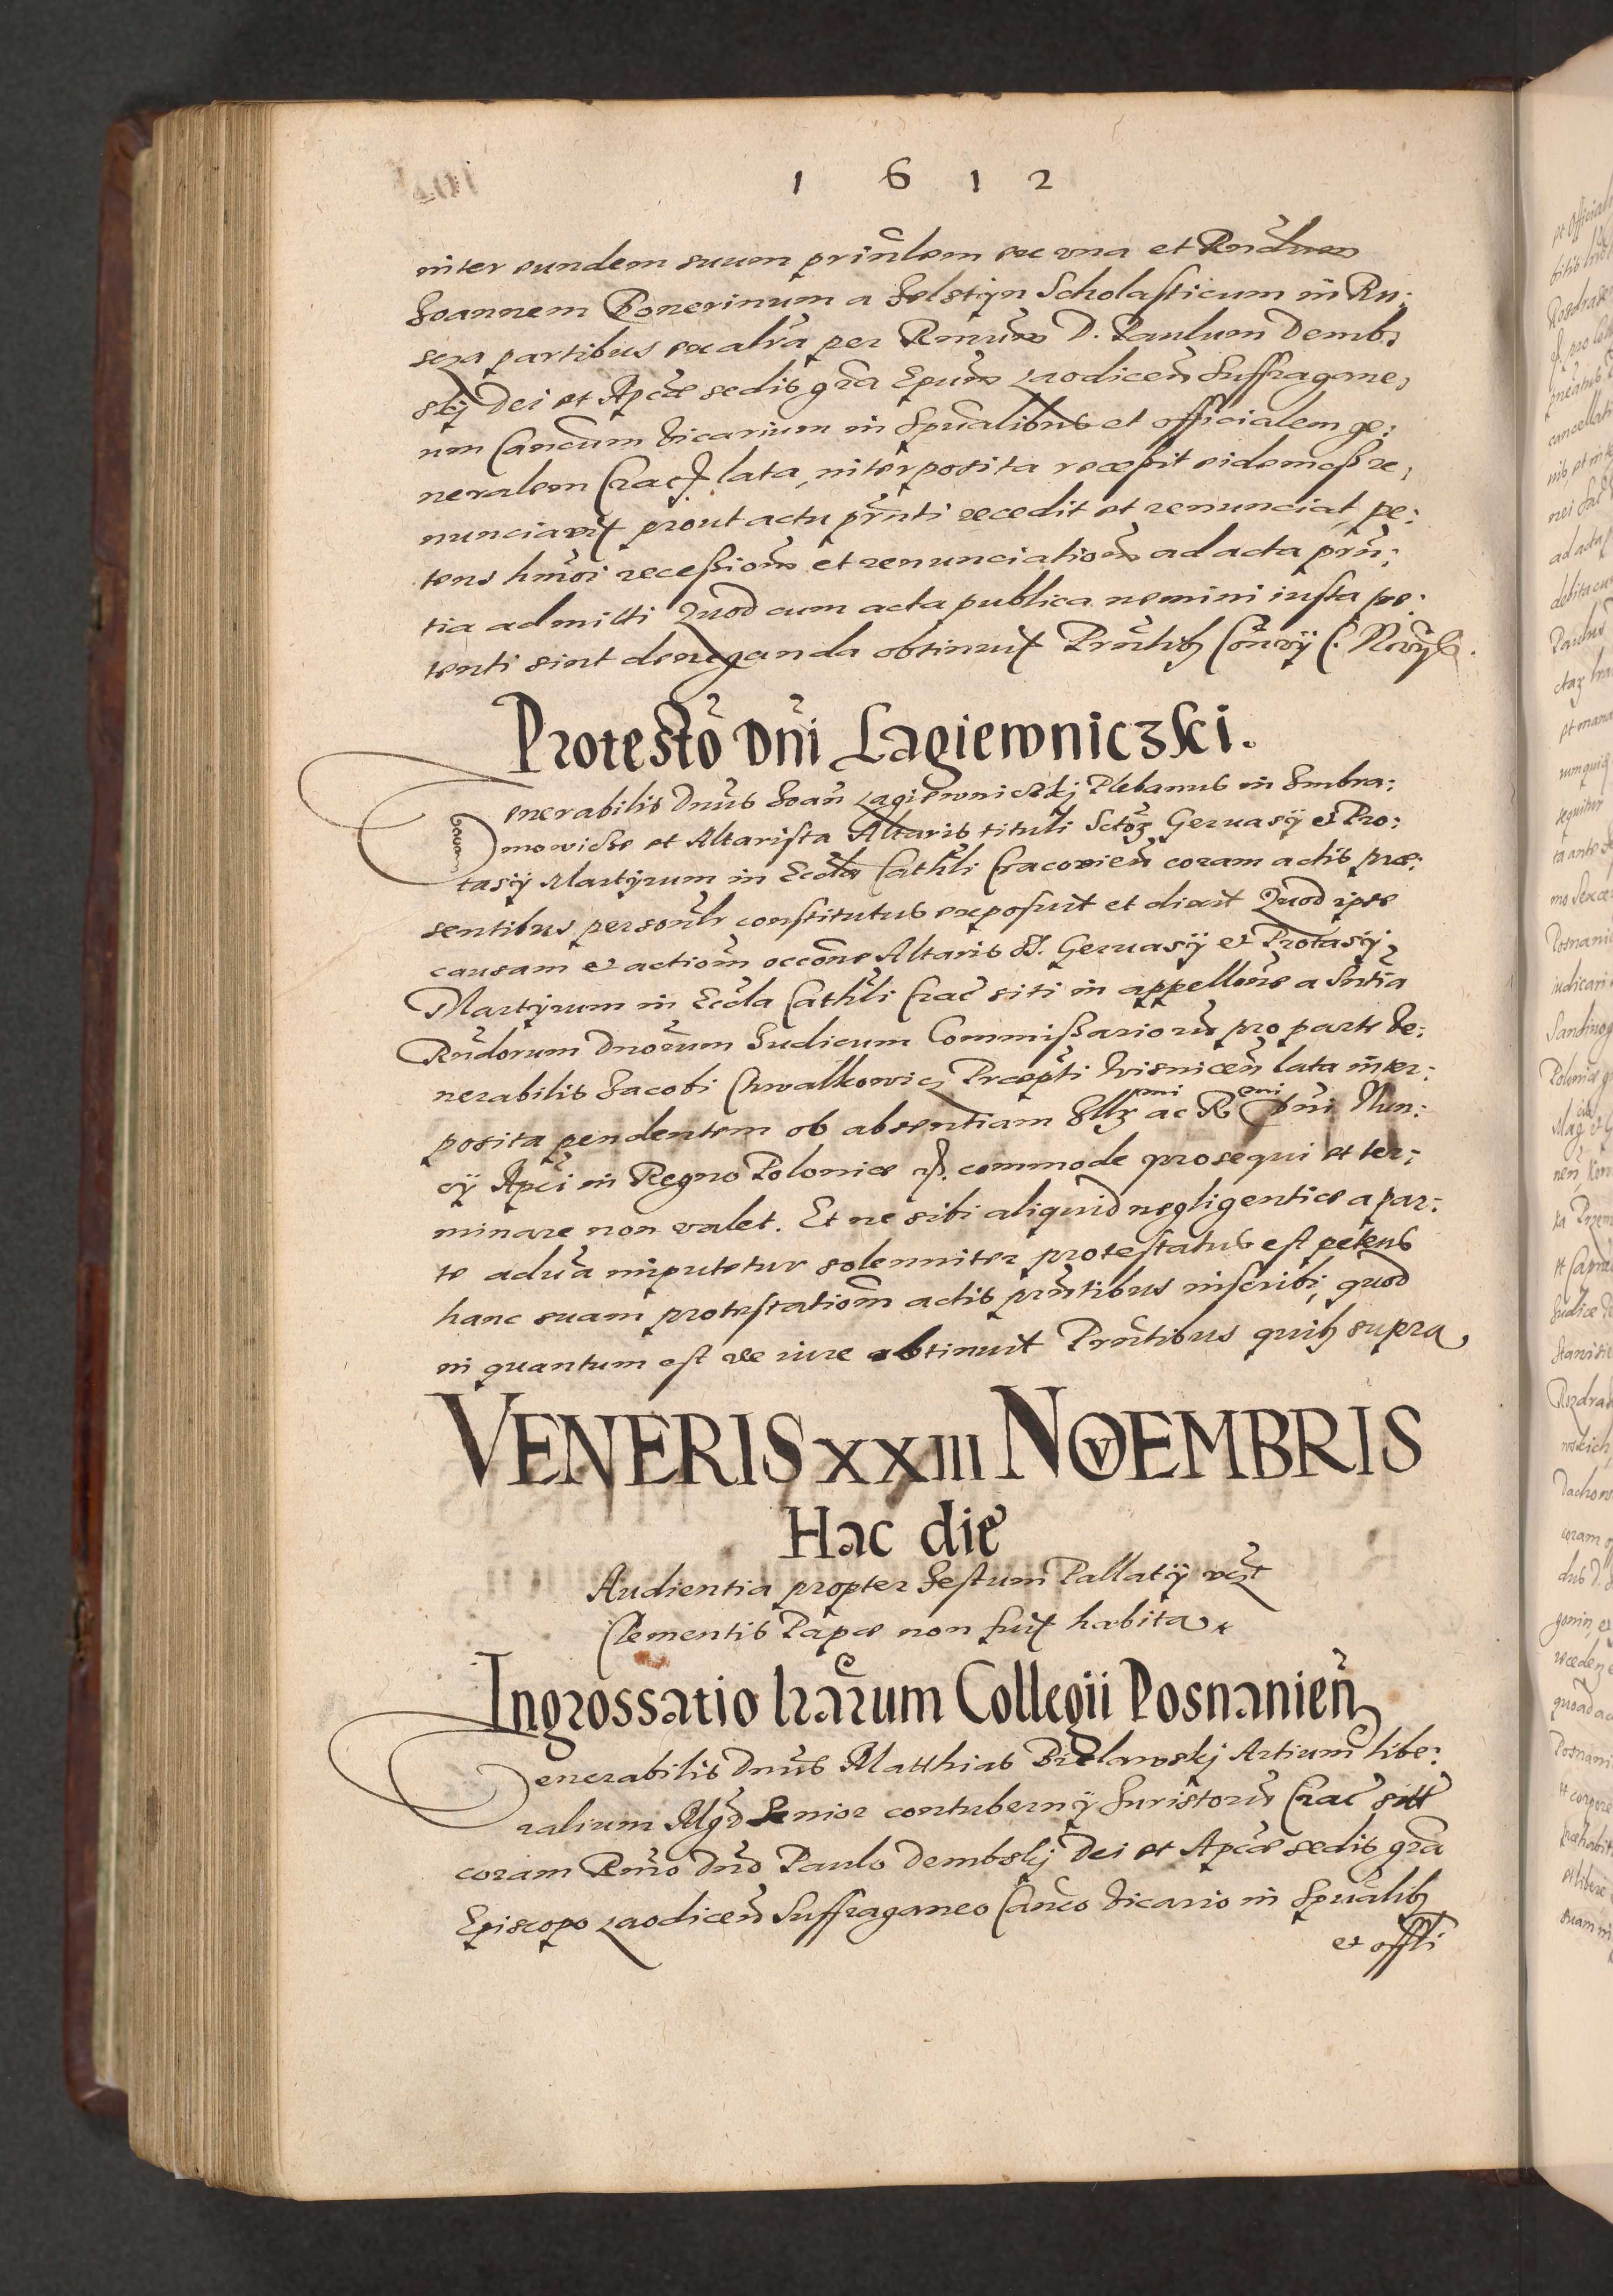 1 6 1 2
inter eundem suum prinlem ex una et Rndum
Joannem Ponerinum a Felstijn Scholasticum in Ru:
sza partibus ex altra per Rmum D. Paulum Demb:
skij Dei et Aplcæ sedis gra Epum Laodiceñ Suffragane,
um Cancum Vicarium in Spualibus et officialem ge:
neralem Crac lata, interposita recessit eidemqs re,
nunciavit prout actu prnti recedit et renunciat pe:
tens hmoi recessiom et renunciatiom ad acta prn:
tia admitti Quod cum acta publica nemini iusta pe:
tenti sint deneganda obtinuit Prntibs
Protestō Dni Lagiewniczki.
Venerabilis Dnus Joañ Lagiewniczkj Plebanus in Imbra:
mowicze et Altarista Altaris tituli Sctoz Geruasÿ et Pro:
tasÿ Martÿrum in Eccla Cathli Cracovieñ coram actis præ:
sentibus personlr constitutus exposuit et dixit Quod ipse
causam et actiom occone Altaris SS. Geruasÿ et Protasÿ
Martÿrum in Eccla Cathli Crac siti in appellone a Sntia
Rndorum Dnorum Judicum Commissarioru pro parte Ve:
nerabilis Jacobi Chwalkowicz Præpti Wisniceñ lata inter:
posita pendentem ob absentiam Illmi ac Rmi Dni Nun:
cÿ Aplci in Regno Poloniæ commode prosequi et ter:
minare non valet. Et ne sibi aliquid negligentiæ a par:
te adua imputetur solenniter protestatus est petens
hanc suam protestatiom actis prntibus inscribi, quod
in quantum est de iure obtinuit Prntibus quibs supra
VENERIS XXIII NOVEMBRIS
Hac die
Audientia propter Festum Pallatÿ
Clementis Papæ non fuit habita
Ingrossatio lrarum Collegii Posnanieñ
Venerabilis Dnus Matthias Bielawskj Artium libe:
ralium Mgr Senior contubernÿ Juristoru Crac
coram Rmo Dno Paulo Dembskj Dei et Aplcæ sedis gra
Episcopo Laodiceñ Suffraganeo Canco Vicario in Spualibs
et offli